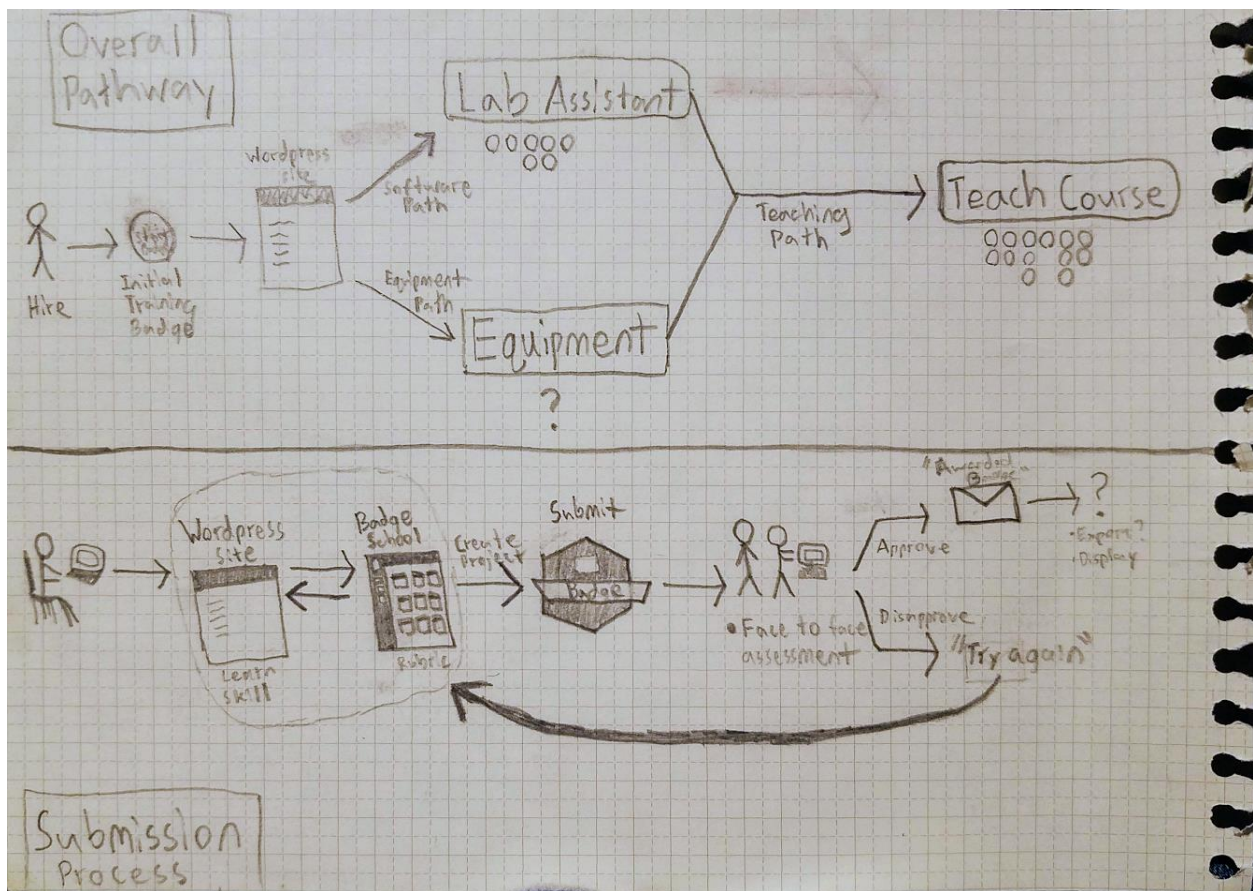 Overall
Pathway
Hire
Initial
Training
Badge
Wordpress
site
Software
Path
Equipment
Path
Lab Assistant
Equipment
?
Teaching
Path
Teach Course
Wordpress
site
Learn
skill
Badge
School
Rubric
Create
Project
Submit
Badge
• Face to face
assessment
Approve
"Awarded
Badge"
?
• Export?
• Display
Disapprove
"Try again"
Submission
Process